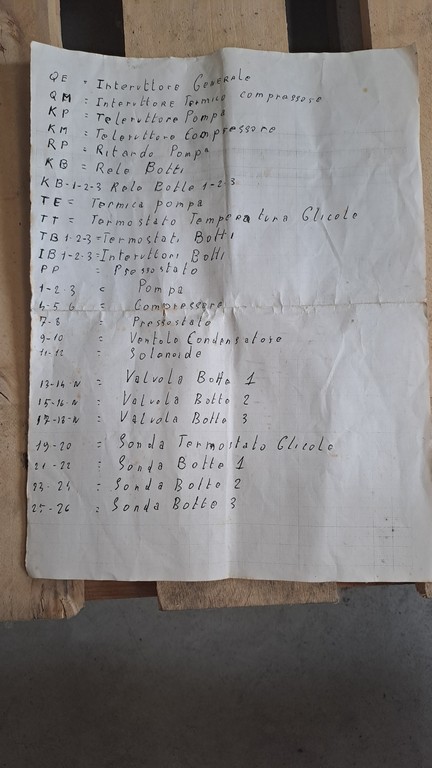 QE = Interuttore GENERALE
QM = INTERUTTORE Termico compressore
KP = Teleruttore Pompa
KM = Teleruttore Compressore
RP = Ritardo Pompa
KB = Rele Botti
KB-1-2-3 Rele Botte 1-2-3
TE = Termica pompa
TT = Termostato Temperatura Glicole
TB1-2-3 = Termostati Botti
IB1-2-3 = Interuttori Botti
PP = Pressostato
1-2-3 = Pompa
4-5-6 = Compressore
7-8 = Pressostato
9-10 = Ventola Condensatore
11-12 = Solenoide
13-14-N = Valvola Botte 1
15-16-N = Valvola Botte 2
17-18-N = Valvola Botte 3
19-20 = Sonda Termostato Glicole
21-22 = Sonda Botte 1
23-24 = Sonda Botte 2
25-26 = Sonda Botte 3